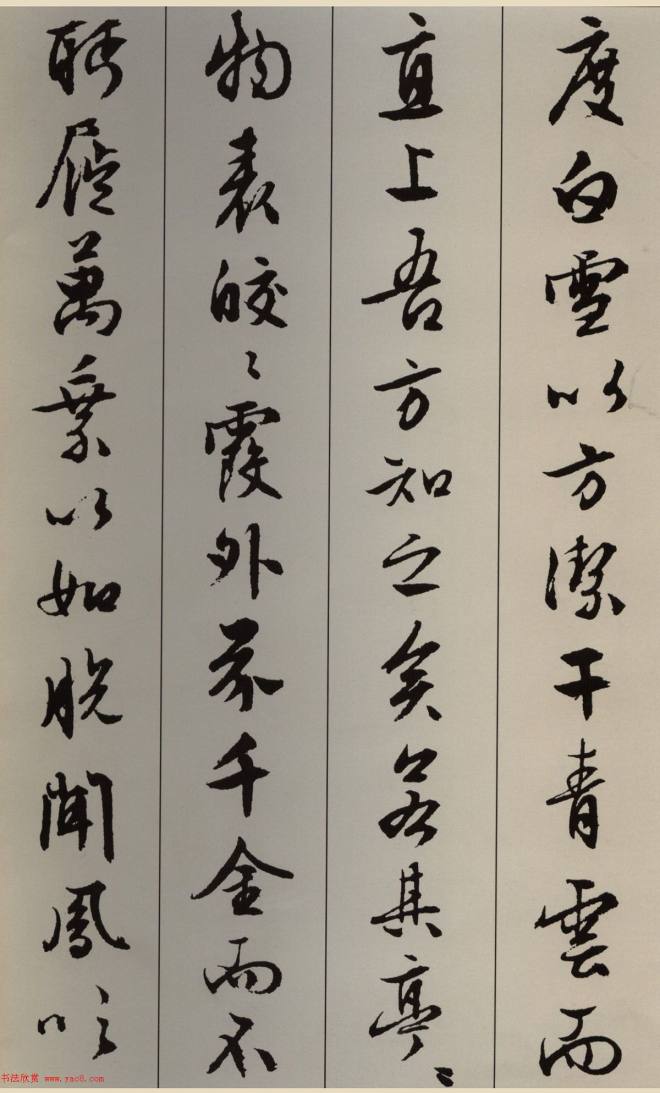 度白雪以方潔干青雲而
直上吾方知之矣若其亭〻
物表皎〻霞外芥千金而不
眄屣萬乘以如脫聞鳳吹
书法欣赏 www.yac8.com